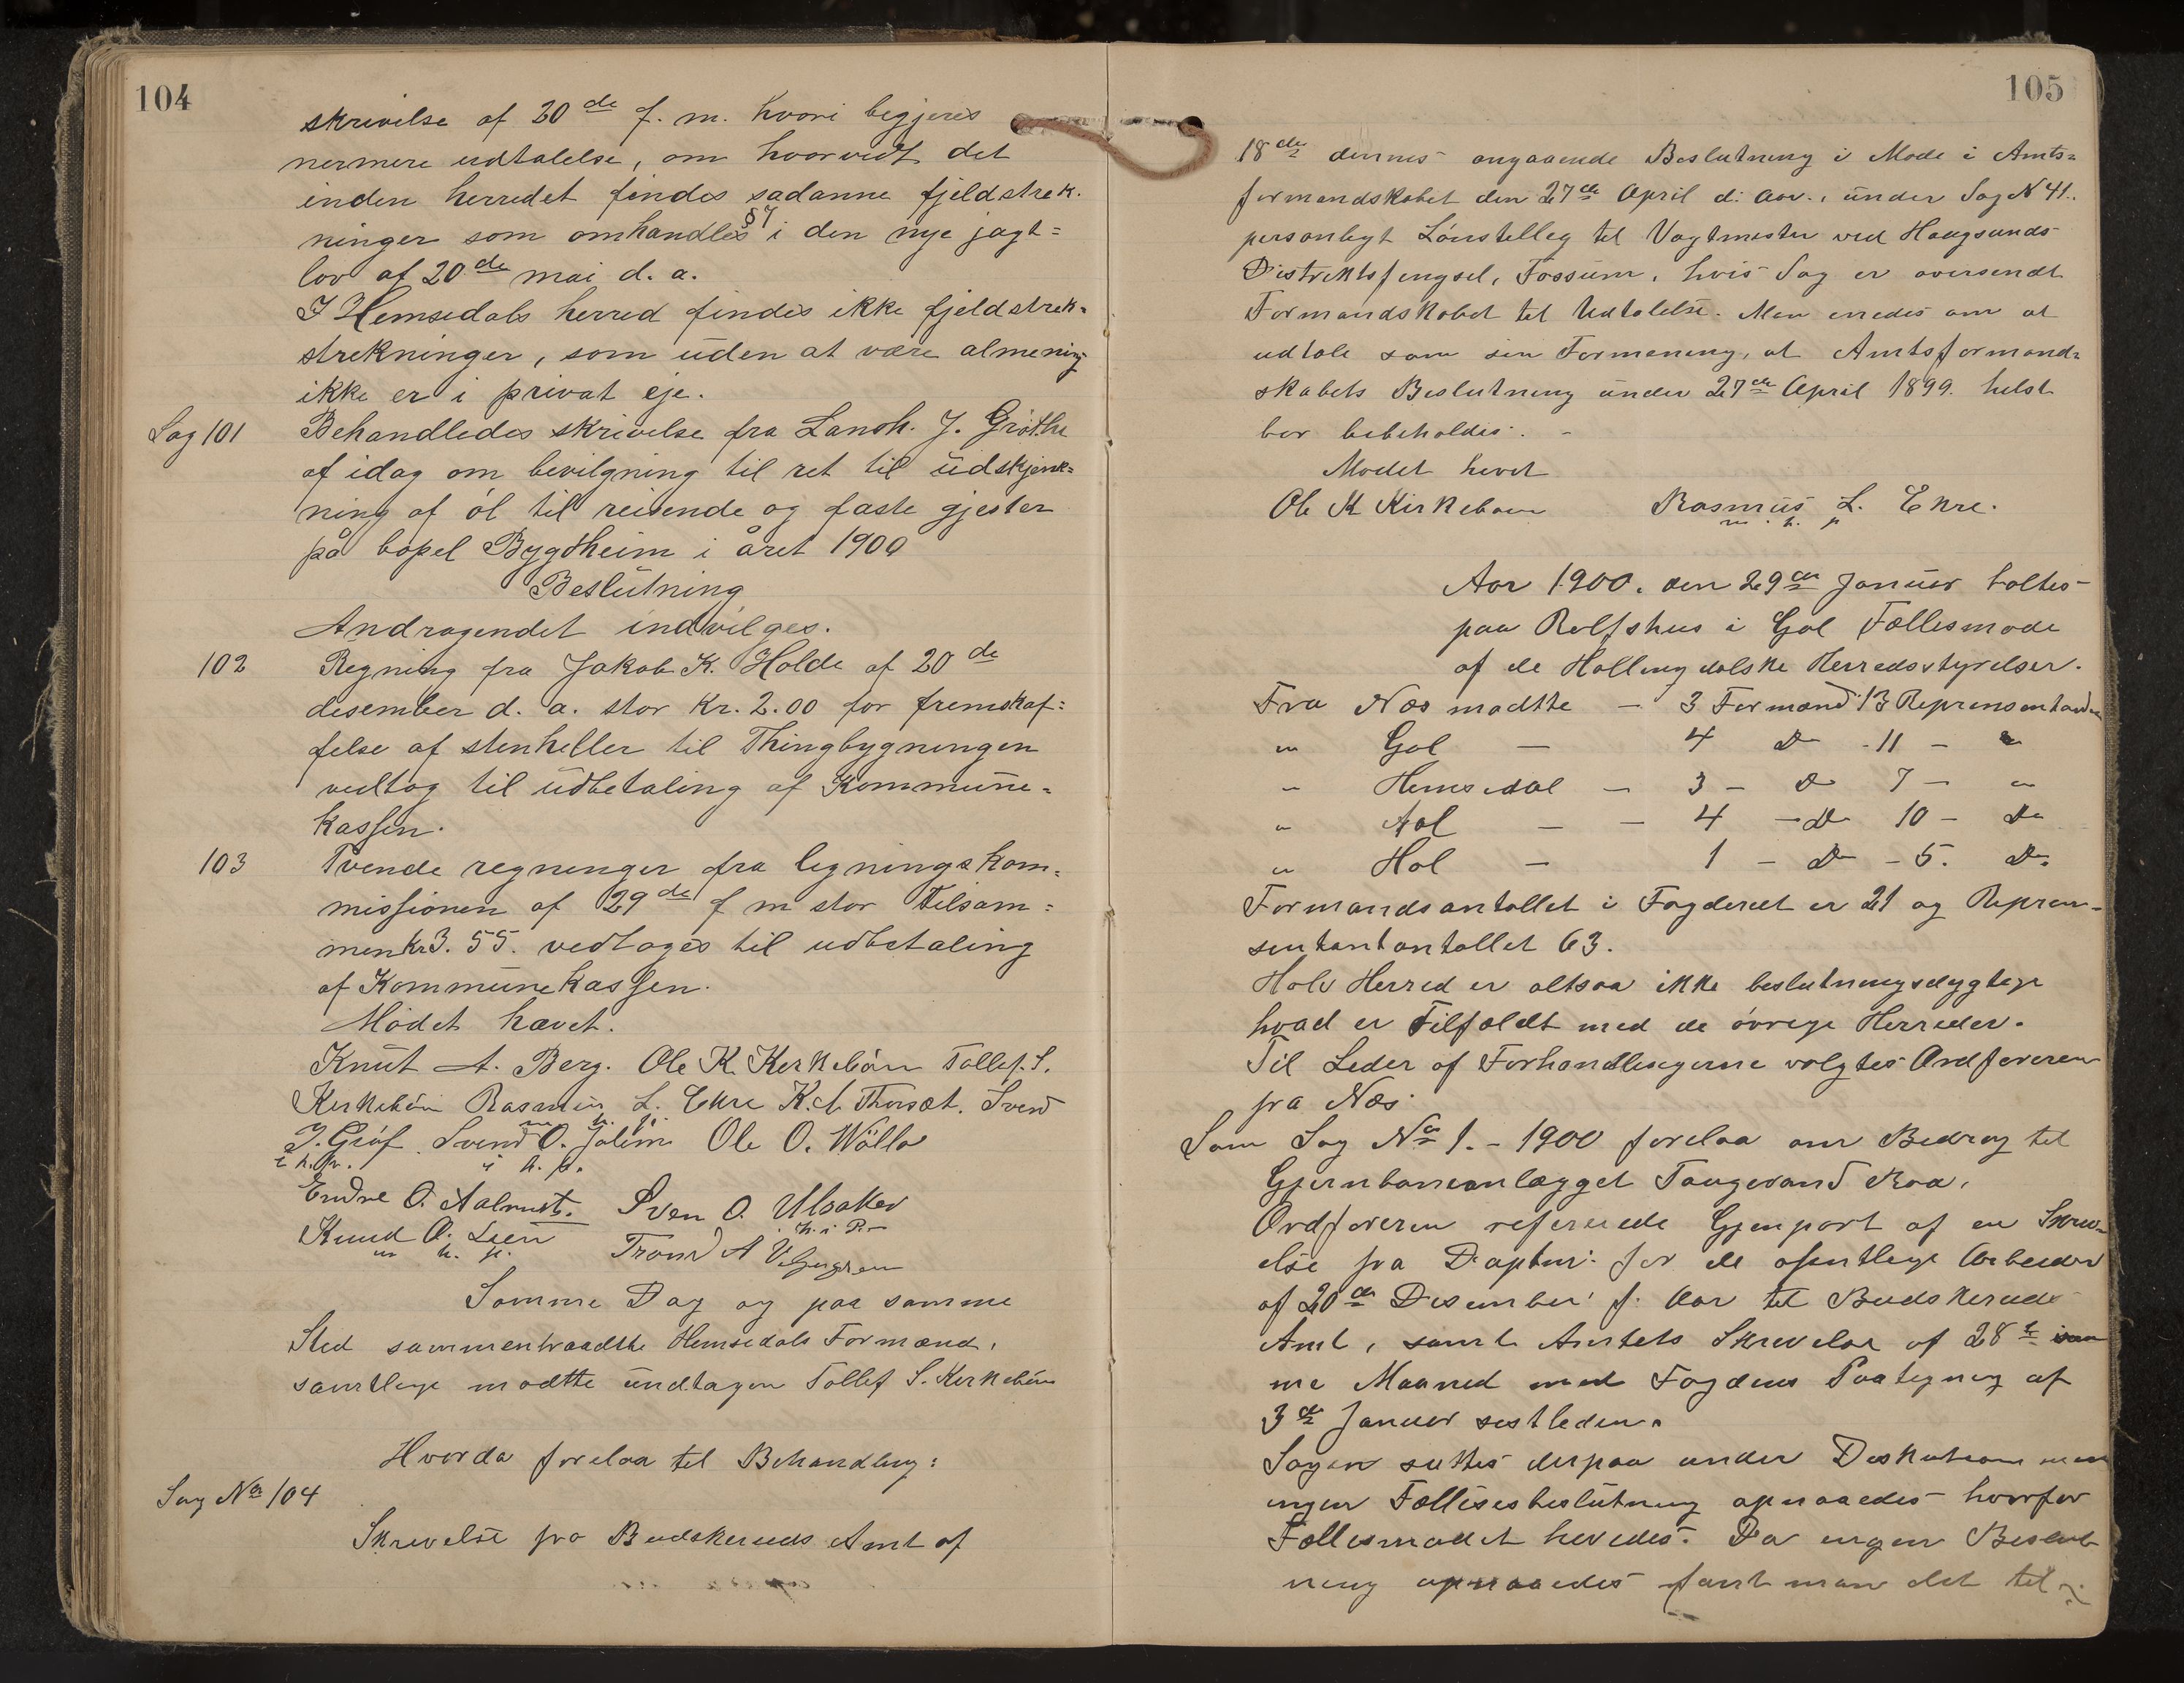 104
skrivelse af 20de f. m. hvori begjeres
nermere udtalelse, om hvorvidt det
inden herredet findes sadanne fjeldstrek-
ninger som omhandles §7 i den nye jagt=
lov af 20de mai d. a.
I Hemsedals herred findes ikke fjeldstrek=
strekninger, som uden at være almening
ikke er i privat eje.
Sag 101 Behandledes skrivelse fra Landh. J. Gróthe
af idag om bevilgning til ret til udskjenk=
ning af ól til reisende og faste gjester
på bopel Bygdheim i året 1900
Beslutning
Andragendet indvilges.
102 Regning fra Jakob K. Holde af 20de
desember d. a. stor Kr. 2.00 for fremskaf=
felse af stenheller til Thingbygningen
vedtog til udbetaling af Kommune=
kassen.
103 Tvende regninger fra ligningskom=
missionen af 29de f m stor tilsam=
men kr 3.55. vedtoges til udbetaling
af Kommunekassen.
Módet hævet.
Knut A. Berg. Ole K. Kirkebóen Tollef. S.
Kirkebóen Rasmus L. Ekre K. A. Thorsæt. Svend
m. h. p.
J. Gróf Svend O. Jolim Ole O. Wóllo
i h. p. i h. p.
Endre O. Aalrust. Sven O. Ulsaker
Knud O. Lien h. i P.
m h. p. Trond A
Samme Dag og paa samme
Sted sammentraadtte Hemsedals Formænd,
samtlige mødtte undtagen Tollef S. Kirkebóen
Hvorda forelaa til Behandling:
Sag No 104
Skrivelse fra Budskeruds Amt af
105
18de dennes angaaende Beslutning i Mode i Amts=
formandskabet den 27de April d: Aar., under Sag N 41.
personligt Lónstilleg til Vagtmester ved Haugsunds
Distriktsfengsel, Fossum, hvis Sag er oversendt
Formandskabet til Udtalelse. Man enedes om at
udtale som sin Formening, at Amtsformand=
skabets Beslutning under 27de April 1899. helst
bor bibeholdes. -
Modet hevet
Ole K Kirkeboen Rasmus L. Ekre.
m. h. p
Aar 1900. den 29de Januar holtes
paa Rolfshus i Gol Fællesmode
af de Hallingdalske Herredsstyrelser.
Fra Nes modtte - 3 Formænd 13 Reprensentanter
" Gol - 4 Do - 11 - "
" Hemsedal - 3 - Do 7 - "
" Aal - - 4 - Do 10 - Do
" Hol - 1 - Do - 5. Do
Formandsantallet i Fogderiet er 21 og Repren-
sentantantallet 63.
Hols Herred er altsaa ikke beslutningsdygtige
hvad er Tilfældt med de óvrige Herreder.
Til Leder af Forhandlingerne valgtes Ordforeren
fra Næs.
Som Sag No 1. - 1900 forelaa om Bidrag til
Gjernbaneanlægget Taugevand Roa.
Ordforeren refererede Gjenpart af en Skriv-
else fra Daptm: for de ofentlige Arbeider
af 20de Desember f. Aar til Budskeruds
Amt, samt Amtets Skrivelse af 28de sam
me Maaned med Fogdens Paategning af
3de Januar sistleden.
Sagen sattes derpaa under Diskution men
ingen Fællesesbeslutning opnaaedes hvorfor
Fællesmodet hevedes. Da ingen Beslut
ning opnaaedes fant man det til-